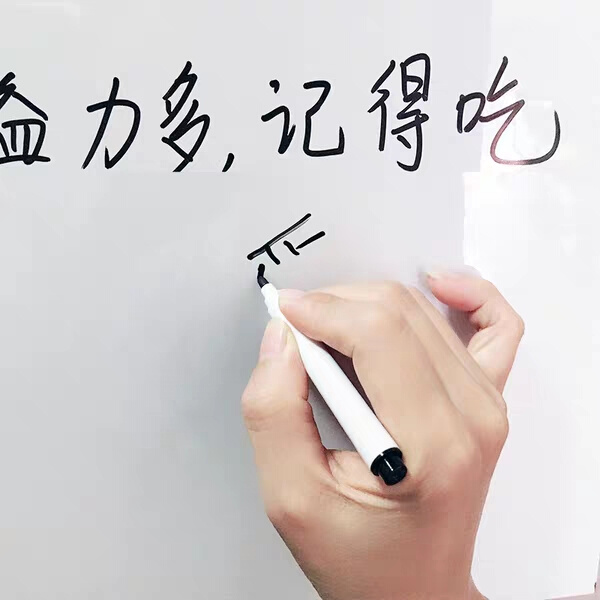 益力多,记得吃